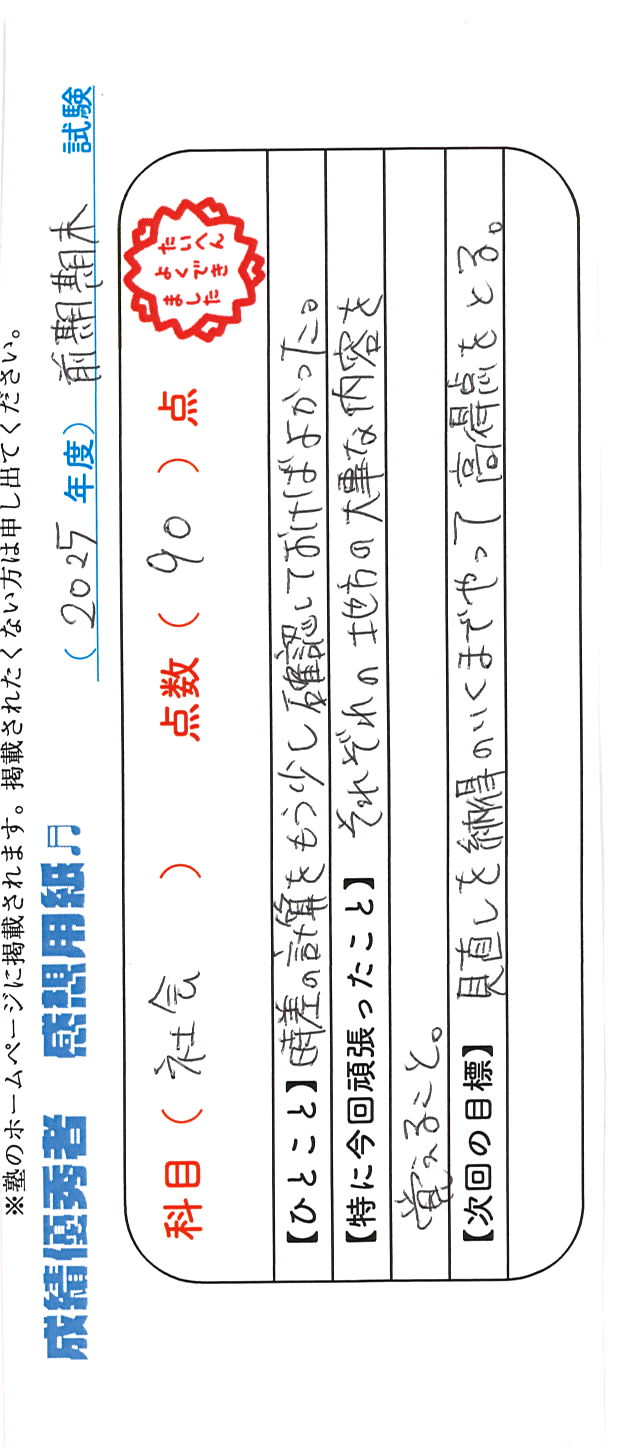 ※塾のホームページに掲載されます。掲載されたくない方は申し出てください。
成績優秀者 感想用紙♬ （2025年度）前期期末 試験
科目（社会） 点数（90）点
たいへん
よくでき
ました
【ひとこと】時差の計算をもう少し確認しておけばよかった。
【特に今回頑張ったこと】それぞれの地方の大事な内容を
覚えること。
【次回の目標】見直しを納得のいくまでやって高得点をとる。